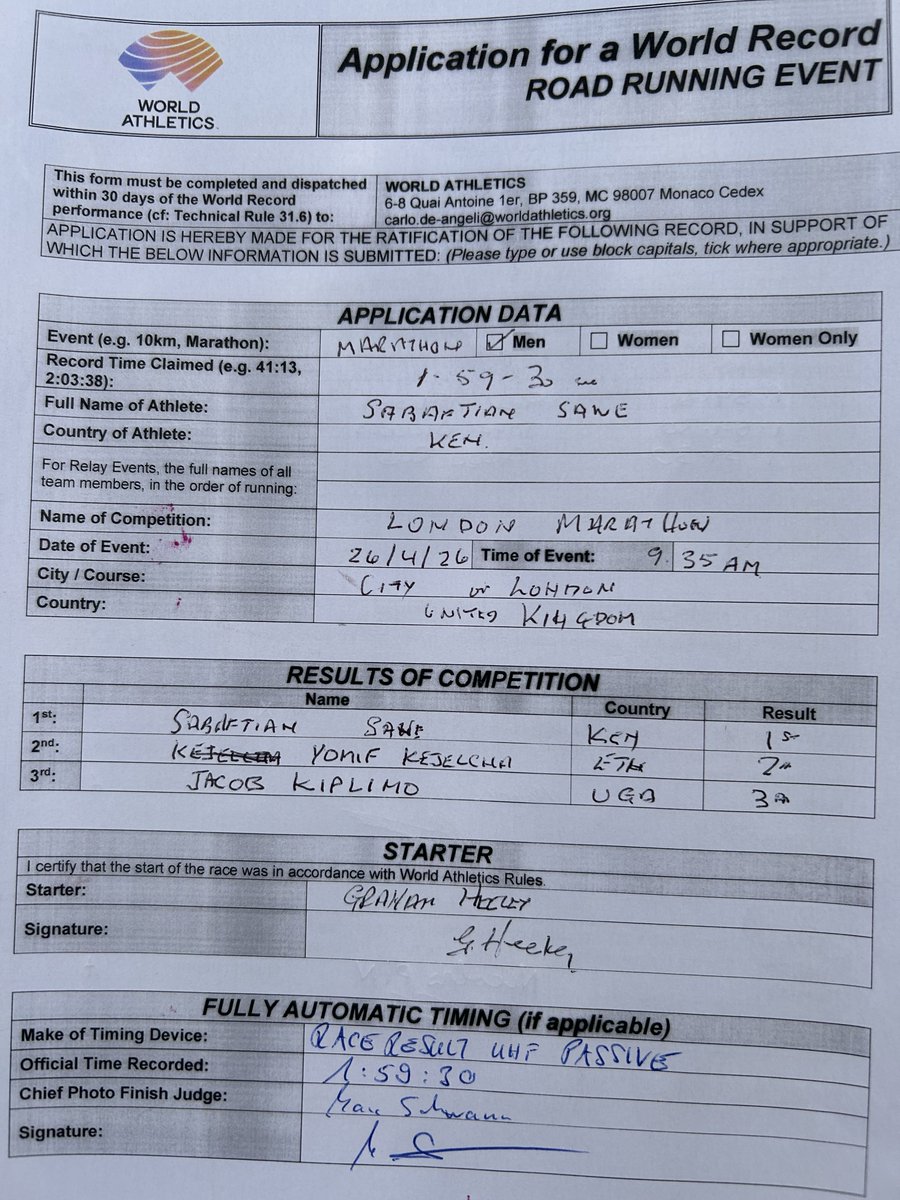 WORLD
ATHLETICS
Application for a World Record
ROAD RUNNING EVENT
This form must be completed and dispatched
within 30 days of the World Record
performance (cf: Technical Rule 31.6) to:
WORLD ATHLETICS
6-8 Quai Antoine 1er, BP 359, MC 98007 Monaco Cedex
carlo.de-angeli@worldathletics.org
APPLICATION IS HEREBY MADE FOR THE RATIFICATION OF THE FOLLOWING RECORD, IN SUPPORT OF
WHICH THE BELOW INFORMATION IS SUBMITTED: (Please type or use block capitals, tick where appropriate.)
APPLICATION DATA
Event (e.g. 10km, Marathon): MARATHON Men Women Women Only
Record Time Claimed (e.g. 41:13,
2:03:38): 1-59-30
Full Name of Athlete: SABAFTIAN SAWE
Country of Athlete: KEN.
For Relay Events, the full names of all
team members, in the order of running:
Name of Competition: LONDON MARATHON
Date of Event: 26/4/26 Time of Event: 9.35 AM
City / Course: CITY OF LONDON
Country: UNITED KINGDOM
RESULTS OF COMPETITION
Name Country Result
1st: SABAFTIAN SAWE KEN 1st
2nd: YOMIF KEJELCHA ETH
3rd: JACOB KIPLIMO UGA
STARTER
I certify that the start of the race was in accordance with World Athletics Rules.
Starter: GRAHAM
Signature:
FULLY AUTOMATIC TIMING (if applicable)
Make of Timing Device: RACE RESULT UHF PASSIVE
Official Time Recorded: 1:59:30
Chief Photo Finish Judge:
Signature: